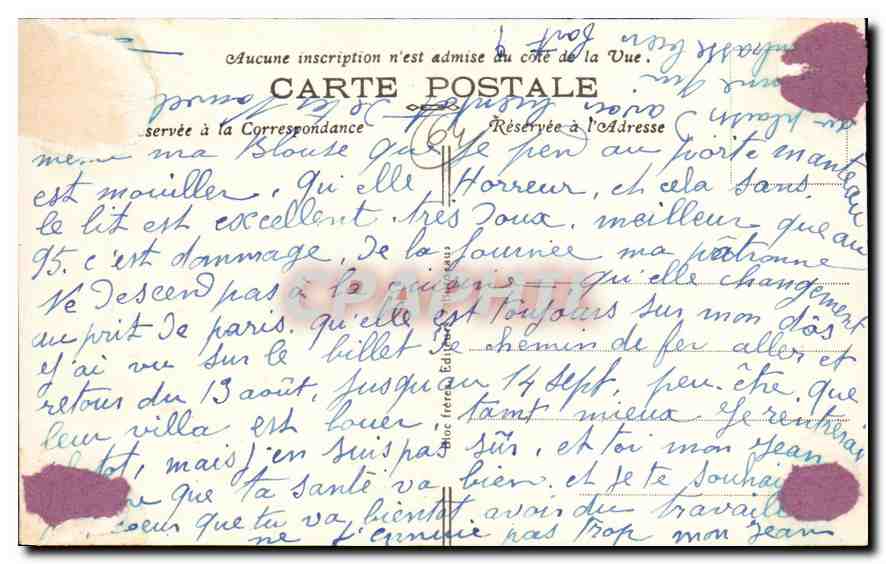 Aucune inscription n'est admise du côté de la Vue.
CARTE POSTALE
servée à la Correspondance
Réservée à l'Adresse
ma Blouse que je pend au porte manteau
est mouiller, qu'elle Horreur, et cela sans
le lit est excellent très doux, meilleur que au
95. c'est dommage, de la journée ma patronne
Ne descend pas à la cuisine – qu'elle changement
au prit de paris. qu'elle est toujours sur mon dos
j'ai vu sur le billet de chemin de fer aller et
retour du 13 août, jusqu'au 14 sept, peu-être que
leur villa est louer, tamt mieux je rentrerai
mais j'en suis pas sûr, et toi mon jean
que ta santé va bien. et je te souhai
coeur que tu va bientot avoir du travail
ne t'ennuie pas trop mon jean
embrasse bien fort
Bloc frères, Editeurs, Bordeaux
CPAPHIL